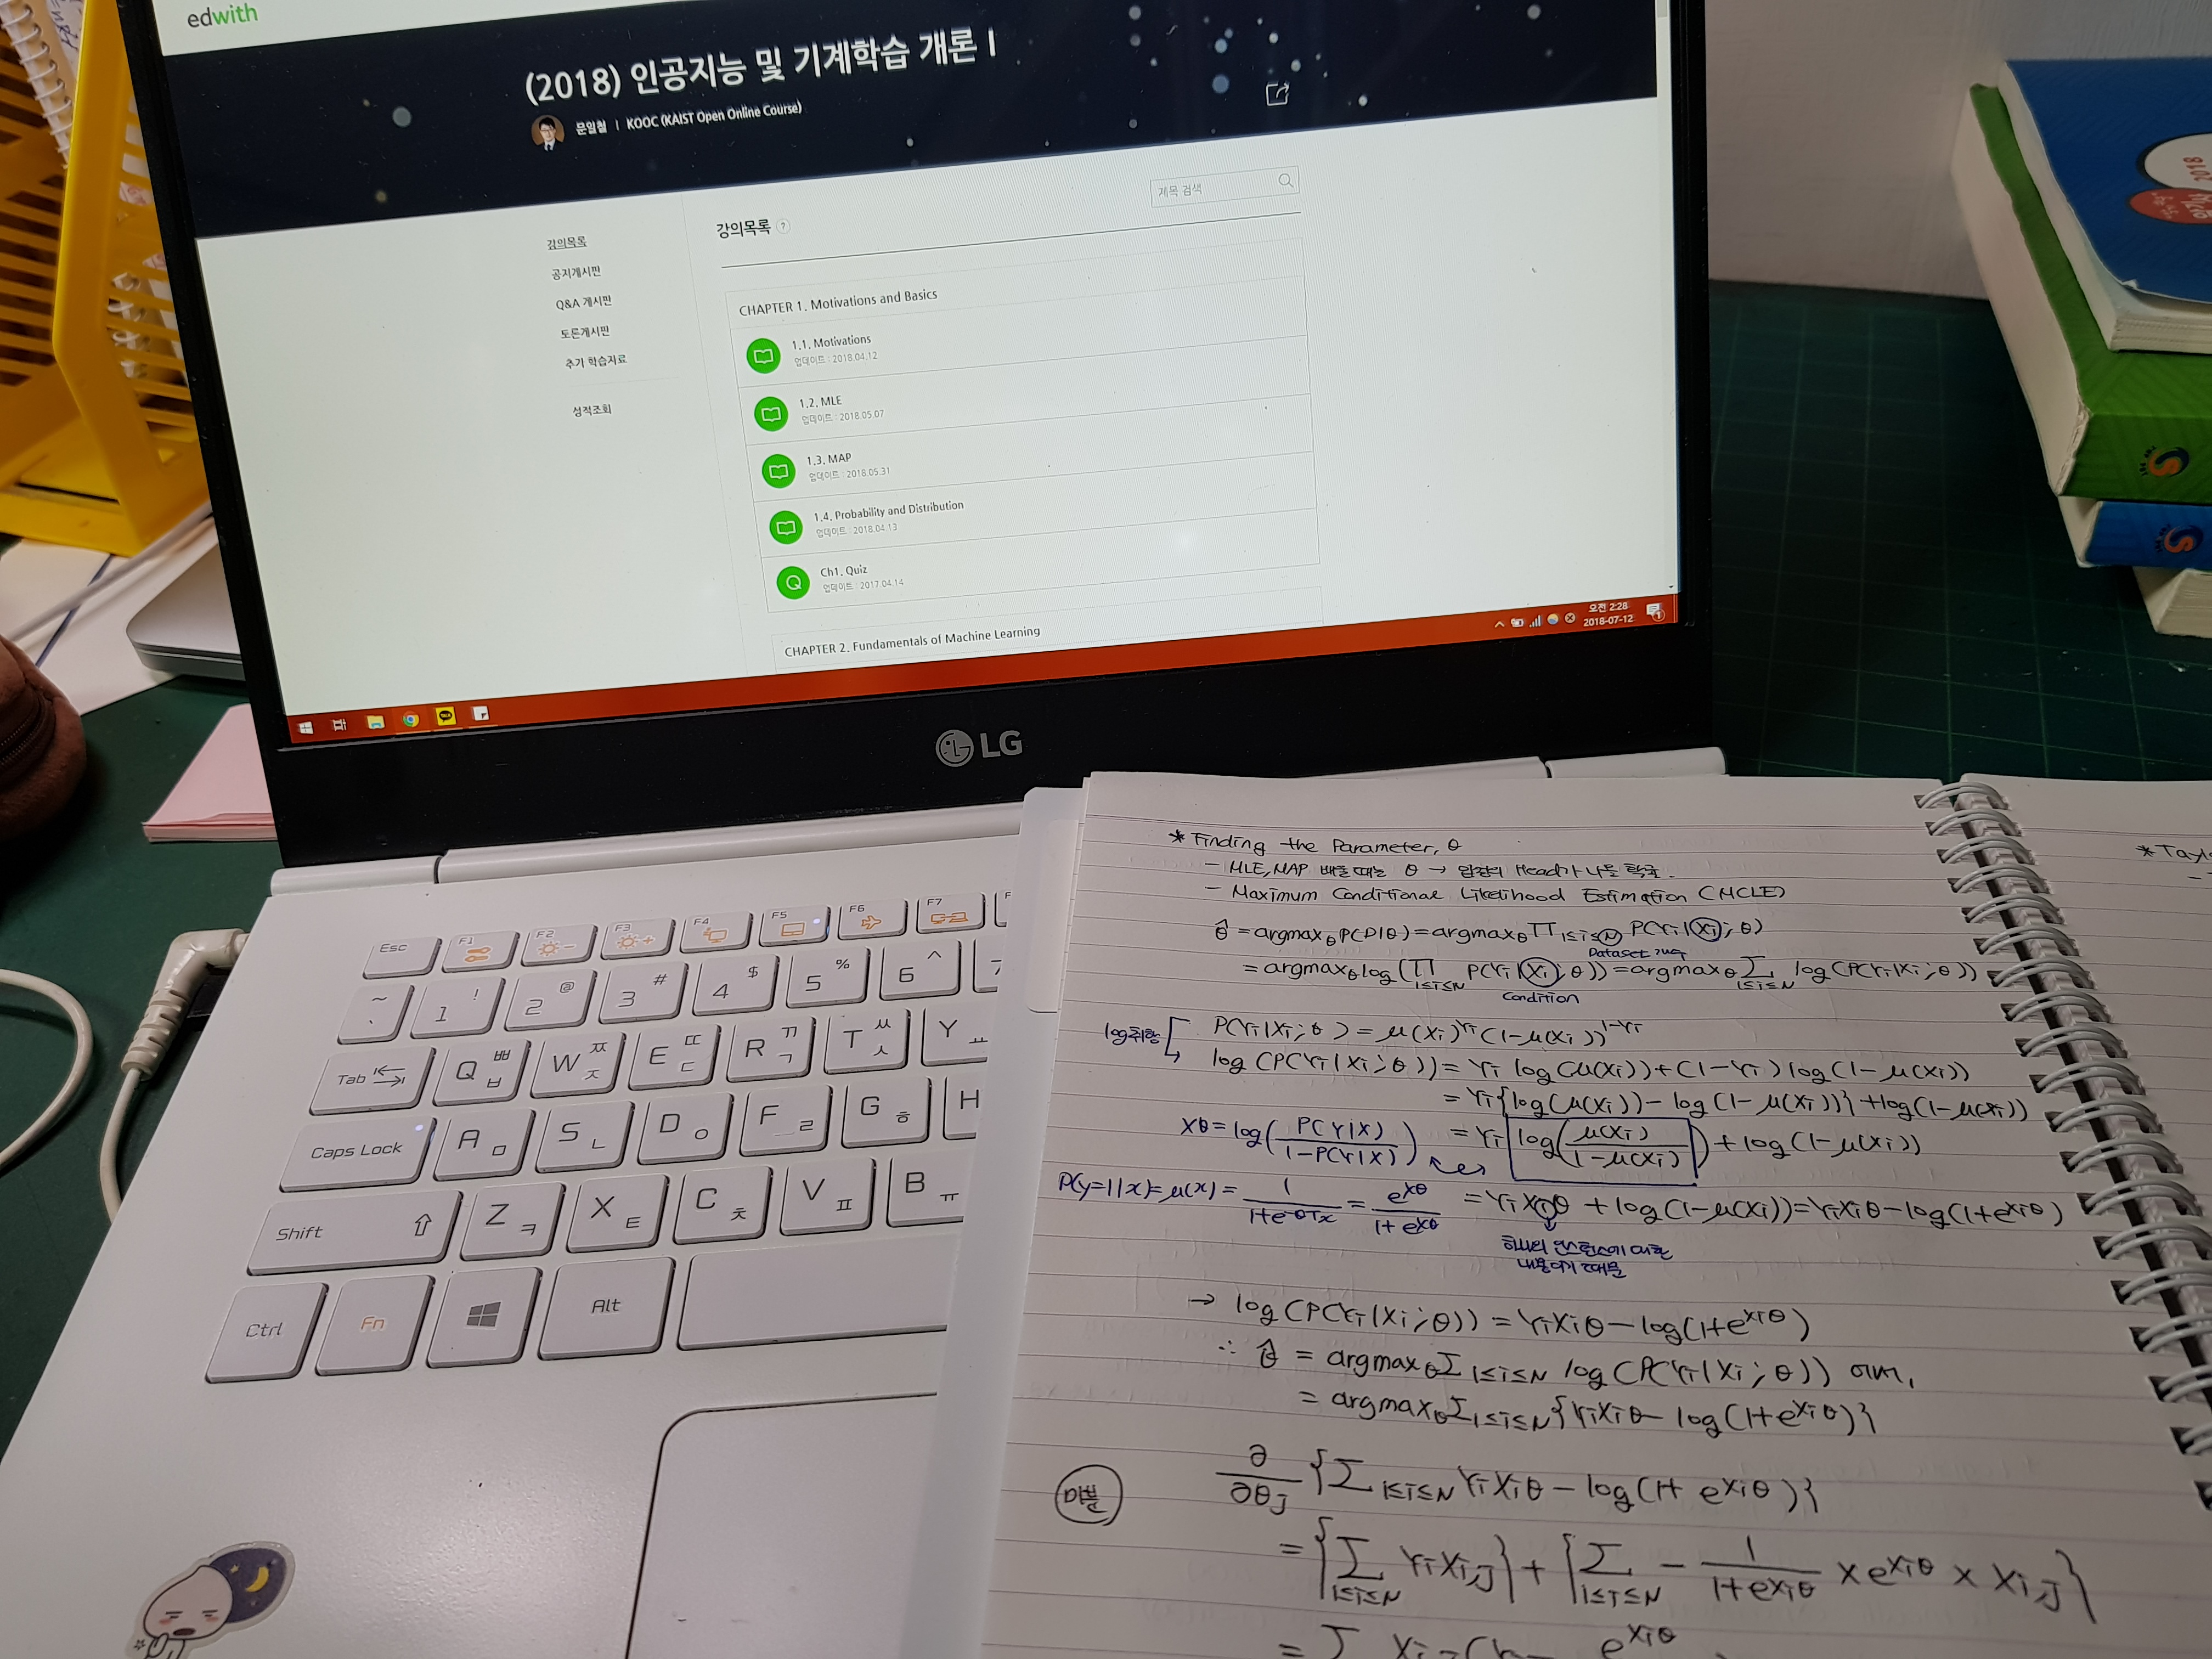 edwith
(2018) 인공지능 및 기계학습 개론 I
문일철 | KOOC (KAIST Open Online Course)
제목 검색
강의목록
공지게시판
Q&A 게시판
토론게시판
추가 학습자료
성적조회
강의목록 ?
CHAPTER 1. Motivations and Basics
1.1. Motivations
업데이트 : 2018.04.12
1.2. MLE
업데이트 : 2018.05.07
1.3. MAP
업데이트 : 2018.05.31
1.4. Probability and Distribution
업데이트 : 2018.04.13
Q
Ch1. Quiz
업데이트 : 2017.04.14
CHAPTER 2. Fundamentals of Machine Learning
오전 2:28
2018-07-12
LG
2018
Esc F1 F2 F3 F4 F5 F6 F7 F
~ ` 1 ! 2 @ 3 # 4 $ 5 % 6 ^ 7
Tab Q ㅃ ㅂ W ㅉ ㅈ E ㄸ ㄷ R ㄲ ㄱ T ㅆ ㅅ Y ㅛ
Caps Lock A ㅁ S ㄴ D ㅇ F ㄹ G ㅎ H
Shift Z ㅋ X ㅌ C ㅊ V ㅍ B ㅠ
Ctrl Fn Alt
* Finding the Parameter, θ
- MLE, MAP 배울 때는 θ → 압정의 Head가 나올 확률.
- Maximum Conditional Likelihood Estimation (MCLE)
θ̂ = argmax_θ P(D|θ) = argmax_θ Π_{1≤i≤N} P(Yi|Xi; θ)
Dataset
= argmax_θ log(Π_{1≤i≤N} P(Yi|Xi; θ)) = argmax_θ Σ_{1≤i≤N} log(P(Yi|Xi; θ))
Condition
log취함
P(Yi|Xi; θ) = μ(Xi)^{Yi} (1-μ(Xi))^{1-Yi}
log(P(Yi|Xi; θ)) = Yi log(μ(Xi)) + (1-Yi) log(1-μ(Xi))
= Yi{log(μ(Xi)) - log(1-μ(Xi))} + log(1-μ(Xi))
Xθ = log(P(Y|X) / 1-P(Y|X))
= Yi log(μ(Xi) / 1-μ(Xi)) + log(1-μ(Xi))
P(y=1|x) = μ(x) = 1 / 1+e^{-θTx} = e^{Xθ} / 1+e^{Xθ}
= YiXiθ + log(1-μ(Xi)) = YiXiθ - log(1+e^{Xiθ})
하나의 인스턴스에 대한
내용이기 때문
→ log(P(Yi|Xi; θ)) = YiXiθ - log(1+e^{Xiθ})
∴ θ̂ = argmax_θ Σ_{1≤i≤N} log(P(Yi|Xi; θ))
= argmax_θ Σ_{1≤i≤N} {YiXiθ - log(1+e^{Xiθ})}
미분
∂/∂θj {Σ_{1≤i≤N} YiXiθ - log(1+e^{Xiθ})}
= {Σ_{1≤i≤N} YiXi,j} + {Σ_{1≤i≤N} - 1 / 1+e^{Xiθ} × e^{Xiθ} × Xi,j}
* Tayl